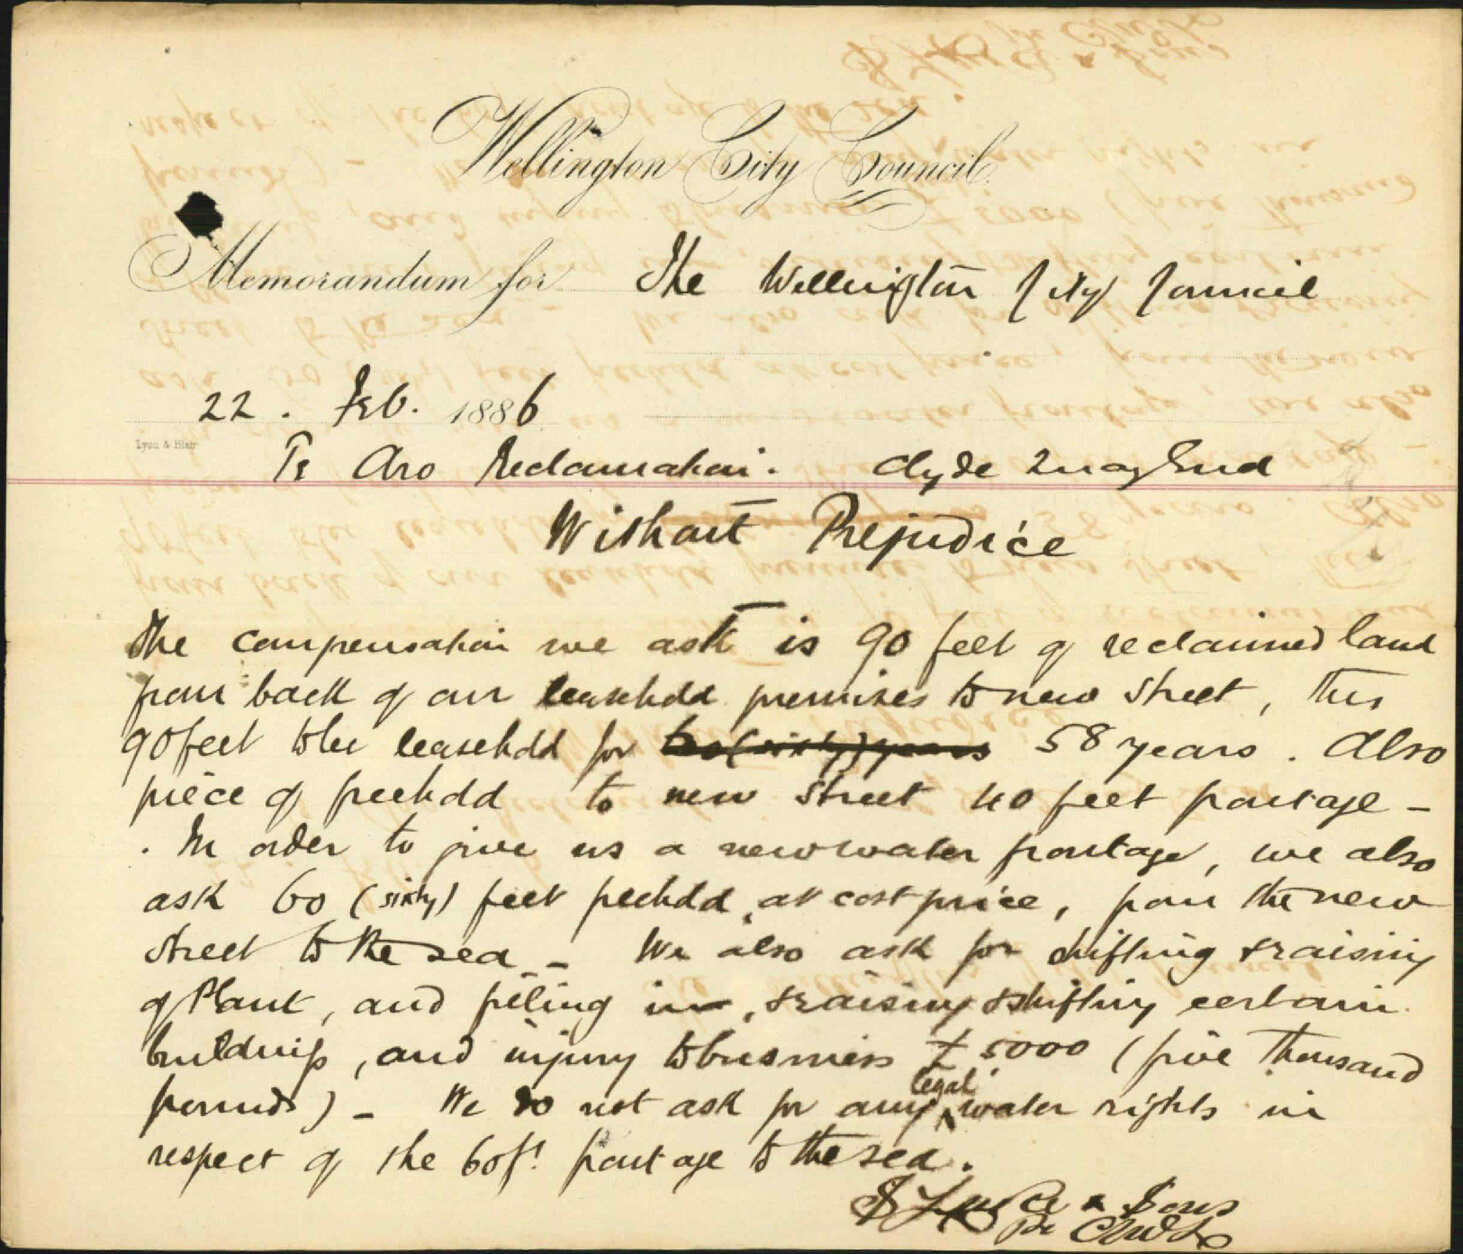 Wellington City Council.
Memorandum for The Wellington City Council
22. Feb. 1886
Lyon & Blair
Te Aro Reclamation. Clyde Quay End
Without Prejudice
The compensation we ask is 90 feet of reclaimed land
from back of our leasehold premises to new street, this
90 feet to be leasehold for 60 (sixty) years 58 years. Also
piece of freehold to new street 40 feet frontage –
. In order to give us a new water frontage, we also
ask 60 (sixty) feet freehold, at cost price, from the new
street to the sea – We also ask for shifting & raising
of Plant, and filling in, & raising & shifting certain
buildings, and injury to business £5000 (five thousand
pounds) – We do not ask for any legal water rights in
respect of the 60 ft. frontage to the sea.
& Sons